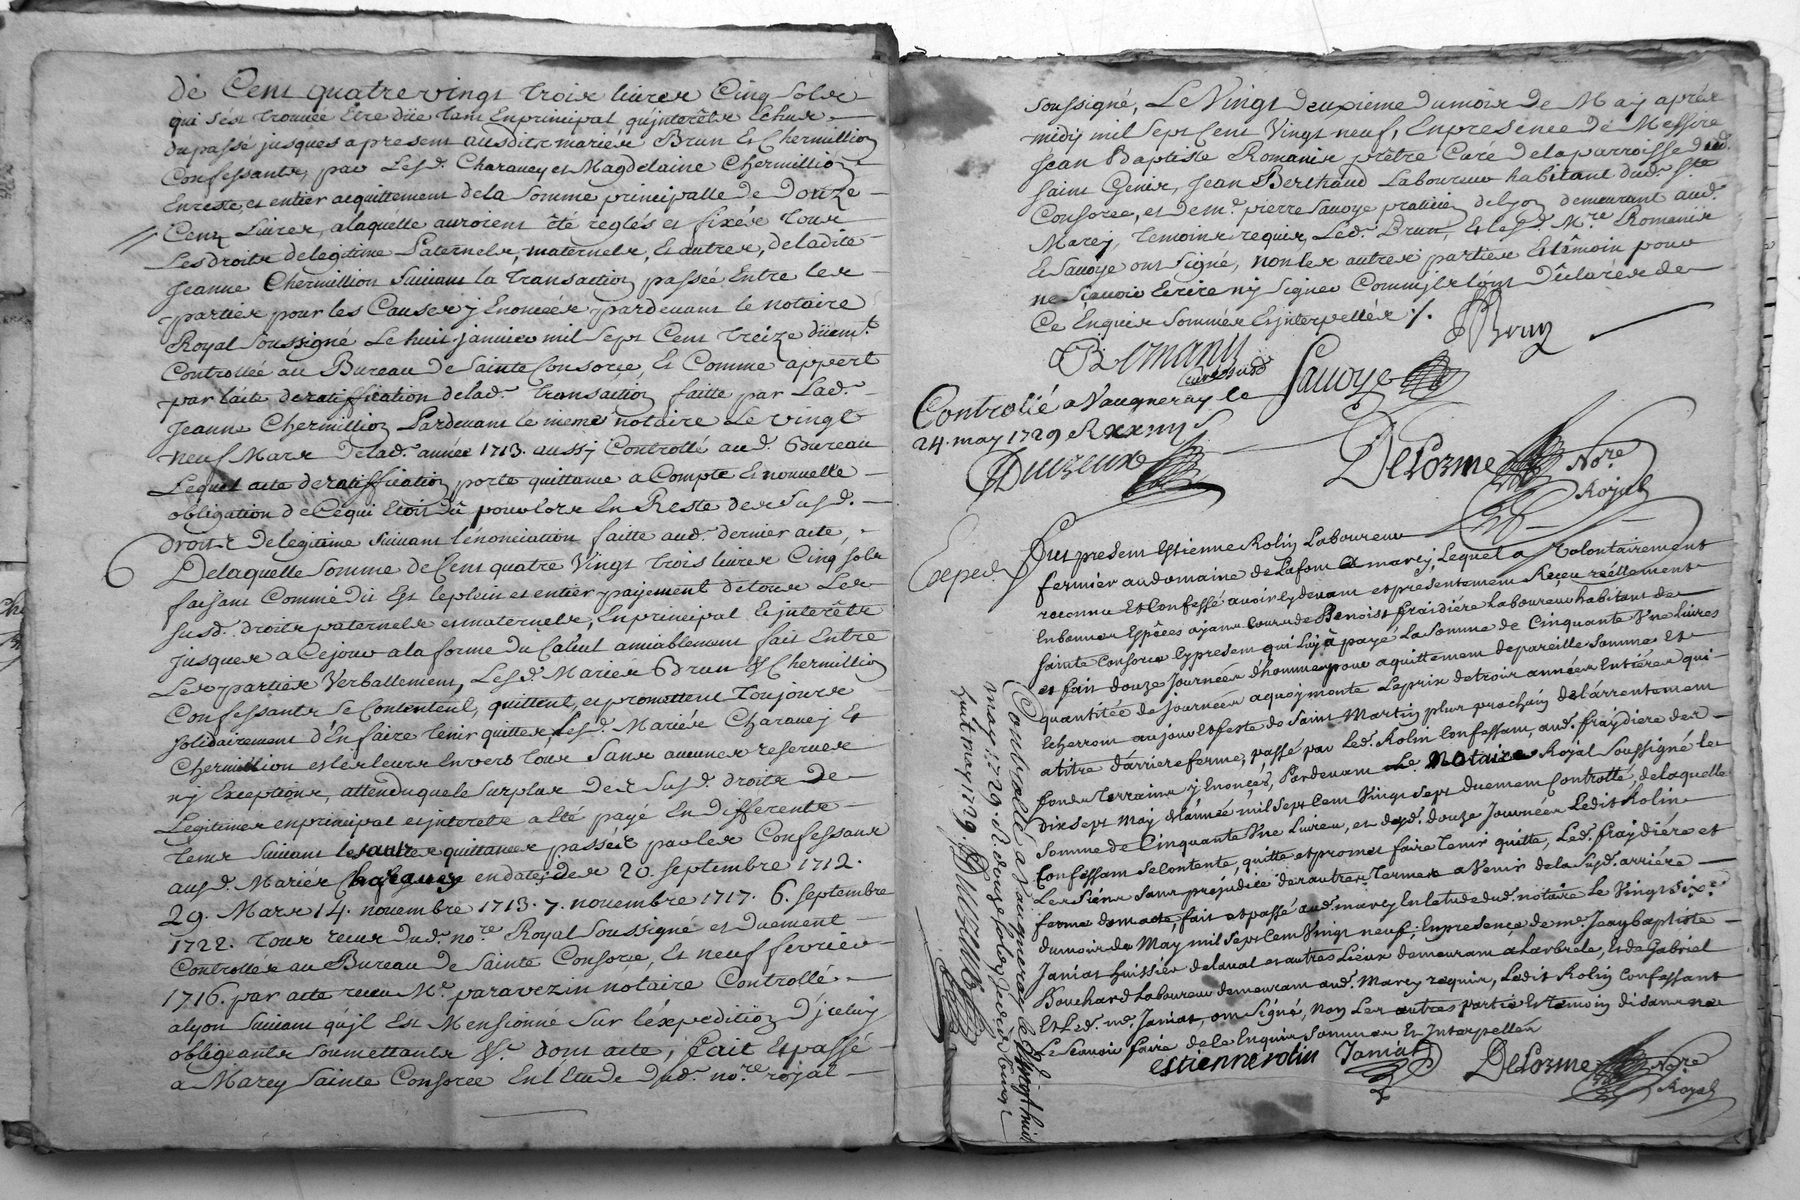 de Cent quatre vingt trois livres Cinq sols
qui s'est trouvée Etre düe tant En principal qu'jnterêts Echus
du passé jusques a present ausdits mariés Brun Et Chermillion
Confessants, par Lesd. Charavey et Magdelaine Chermillion
En reste, et entier acquittement dela Somme principalle de Douze
Cent Livres, alaquelle auroient été reglés et fixés Tous
Les droits delegitime Paternels, maternels, Et autres, deladite
Jeanne Chermillion Suivant la transaction passée Entre les
parties pour les Causes y Enoncées pardevant le notaire
Royal Soussigné Le huit janvier mil Sept Cent Treize düem.t
Controllée au Bureau de Sainte Consorce, Et Comme appert
par l'acte deratiffication delad. transaction faitte par Lad.
Jeanne Chermillion Pardevant le meme notaire Le vingt
neuf Mars Delad. année 1713. aussy Controllé aud. Bureau
Lequel acte deratiffication porte quittance a Compte Et nouvelle
obligation de Cequi Etoit dü pour lors En Reste des Susd.
droits Delegitime suivant l'énonciation faitte aud. dernier acte,
Delaquelle Somme de Cent quatre Vingt Trois livres Cinq sols
faisant Comme dit Est leplein et entier payement detous Les
susd. droits paternels et maternels, En principal Et jnterêts
jusques a Cejour ala forme du Calcul amiablement fait Entre
Les parties Verballement, Lesd. Mariés Brun & Chermillion
Confessants Se Contentent, quittent, et promettent Toujours
solidairement d'En faire tenir quittes, Lesd. Mariés Charavey Et
Chermillion et les leurs Envers tous Sans aucunes reserves
ny Exceptions, attendu que le Surplus des Susd. droits De
Legitimes en principal et jnterets a Eté payé En differents
tems Suivant les autres quittances passées par les Confessant
ausd. Mariés Charavey en datte des 20. Septembre 1712.
29. Mars 14. novembre 1713. 7. novembre 1717. 6. Septembre
1722. Tous receus Dud. no.re Royal Soussigné et Duement
Controllés au Bureau De Sainte Consorce, Et neuf fevrier
1716. par acte receu M.e paravezin notaire Controllé
alyon Suivant qu'jl Est Mensionné Sur l'éxpedition D'jceluy
obligeants Soumettants &c. dont acte, fait Et passé
a Marcy Sainte Consorce En l'Etude Dud. no.re royal
soussigné, Le Vingt deuxieme du mois de May aprés
midy mil Sept Cent Vingt neuf, En presence de Messire
Jean Baptiste Romanis prêtre Curé dela parroisse dud.
saint Genis, Jean Berthaud Laboureur habitant dud. S.te
Consorce, et de m.e pierre Savoye praticien de lyon demeurant aud.
Marcy, temoins requis, Led. Brun, Et led. S.r M.re Romanis
Et Savoye ont Signé, non les autres parties Et têmoin pour
ne Sçavoir Ecrire ny Signer Comme jls l'ont Déclarés de
Ce Enquis Sommés Et jnterpellés ./.
Brun
Romanis
curé susd.
Savoye
Controlé a Vaugneray le
24. may 1729
Delorme No.re
Royal
Exped.
Fut present Estienne Rolin Laboureur
fermier au domaine de Lafont a marcy, Lequel a Volontairement
reconnu Et Confessé avoir cydevant et presentement Receu réellement
En bonnes Espêces ayant Cours de Benoist fraidiére Laboureur habitant de
Sainte Consorce Cypresent qui Luy à payé La Somme de Cinquante Vne livres
et fait douze Journées d'hommes pour aquittement depareille Somme Et
quantitée de journées a quoy monte Leprix de trois années Entiéres qui
Echerront au jour et feste de Saint Martin plus prochain del'arrentement
a titre d'arriere ferme, passé par Led. Rolin Confessant, aud. fraydiere des
fonds Terrains y Enoncés, Pardevant Le Notaire Royal Soussigné le
Dix Sept May de l'année mil Sept Cent Vingt Sept duement Controllé, de laquelle
Somme de Cinquante Vne Livres, et desd. douze Journées Ledit Rolin
Confessant Se Contente, quitte et promet faire Tenir quitte, Led. fraydiére et
Les Siens Sans prejudice des autres Termes a Venir dela Susd. arriére
ferme dont acte, fait et passé aud. marcy En l'etude dud. notaire Le Vingt Six.e
du mois de May mil Sept Cent Vingt neuf; En presence de m.e Jean baptiste
Janiat huissier delaval et autres Lieux demeurant a Larbrele, et de Gabriel
Bouchard Laboureur demeurant aud. Marcy requis, Ledit Rolin Confessant
Et Led. m.e Janiat, ont Signé, Non Les autres partie Et temoin disant ne
Le Scavoir faire de le Enquis Sommés Et Interpellés
estienne rolin
Janiat
Delorme No.re
Royal
Controollé a Vaugneray le Vingt huit
may 1729. R. douze sols
huit may 1729